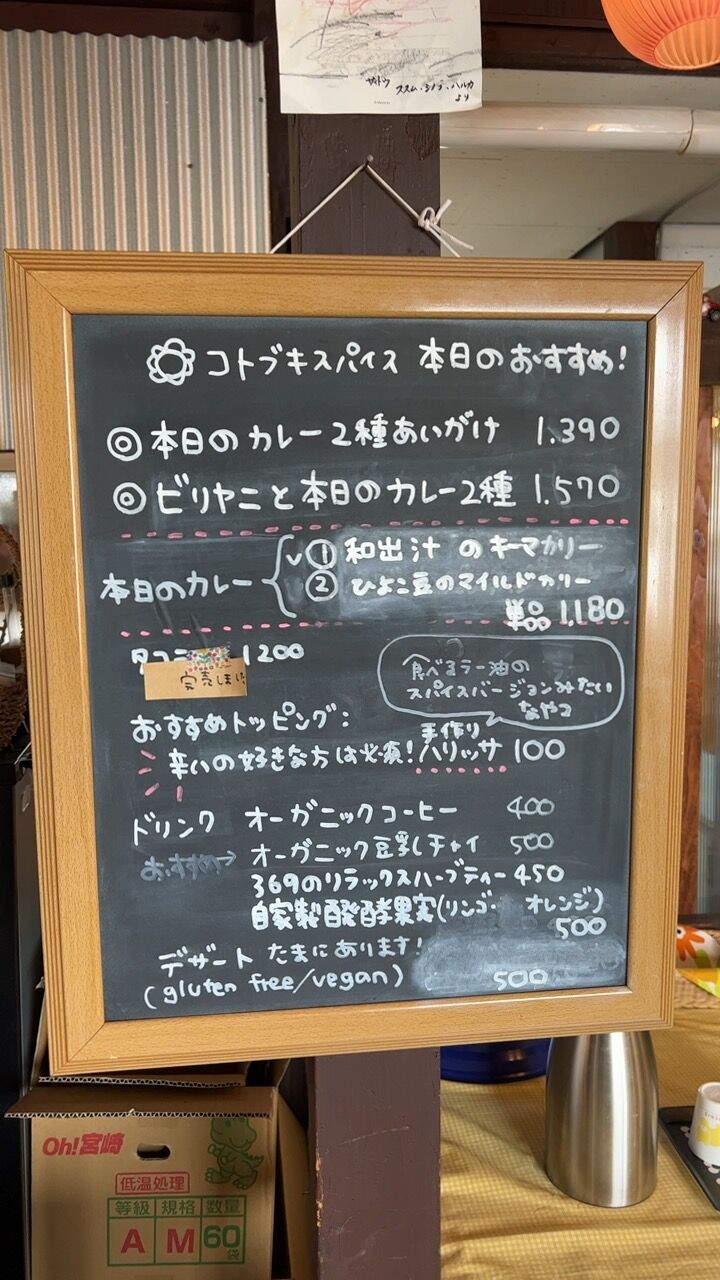 ススム・シノブ・ハルカ
より
コトブキスパイス 本日のおすすめ!
◎本日のカレー2種あいがけ 1.390
◎ビリヤニと本日のカレー2種 1.570
本日のカレー
✓① 和出汁のキーマカリー
② ひよこ豆のマイルドカリー
単品 1.180
タコ 1200
完売しまし
食べるラー油の
スパイスバージョンみたい
なやつ
おすすめトッピング:
辛いの好きな方は必須! 手作りハリッサ 100
ドリンク オーガニックコーヒー 400
おすすめ→ オーガニック豆乳チャイ 500
369のリラックスハーブティー 450
自家製醗酵果実(リンゴ・ オレンジ)
500
デザート たまにあります!
(gluten free/vegan) 500
Oh!宮崎
低温処理
等級 規格 数量
A M 60袋